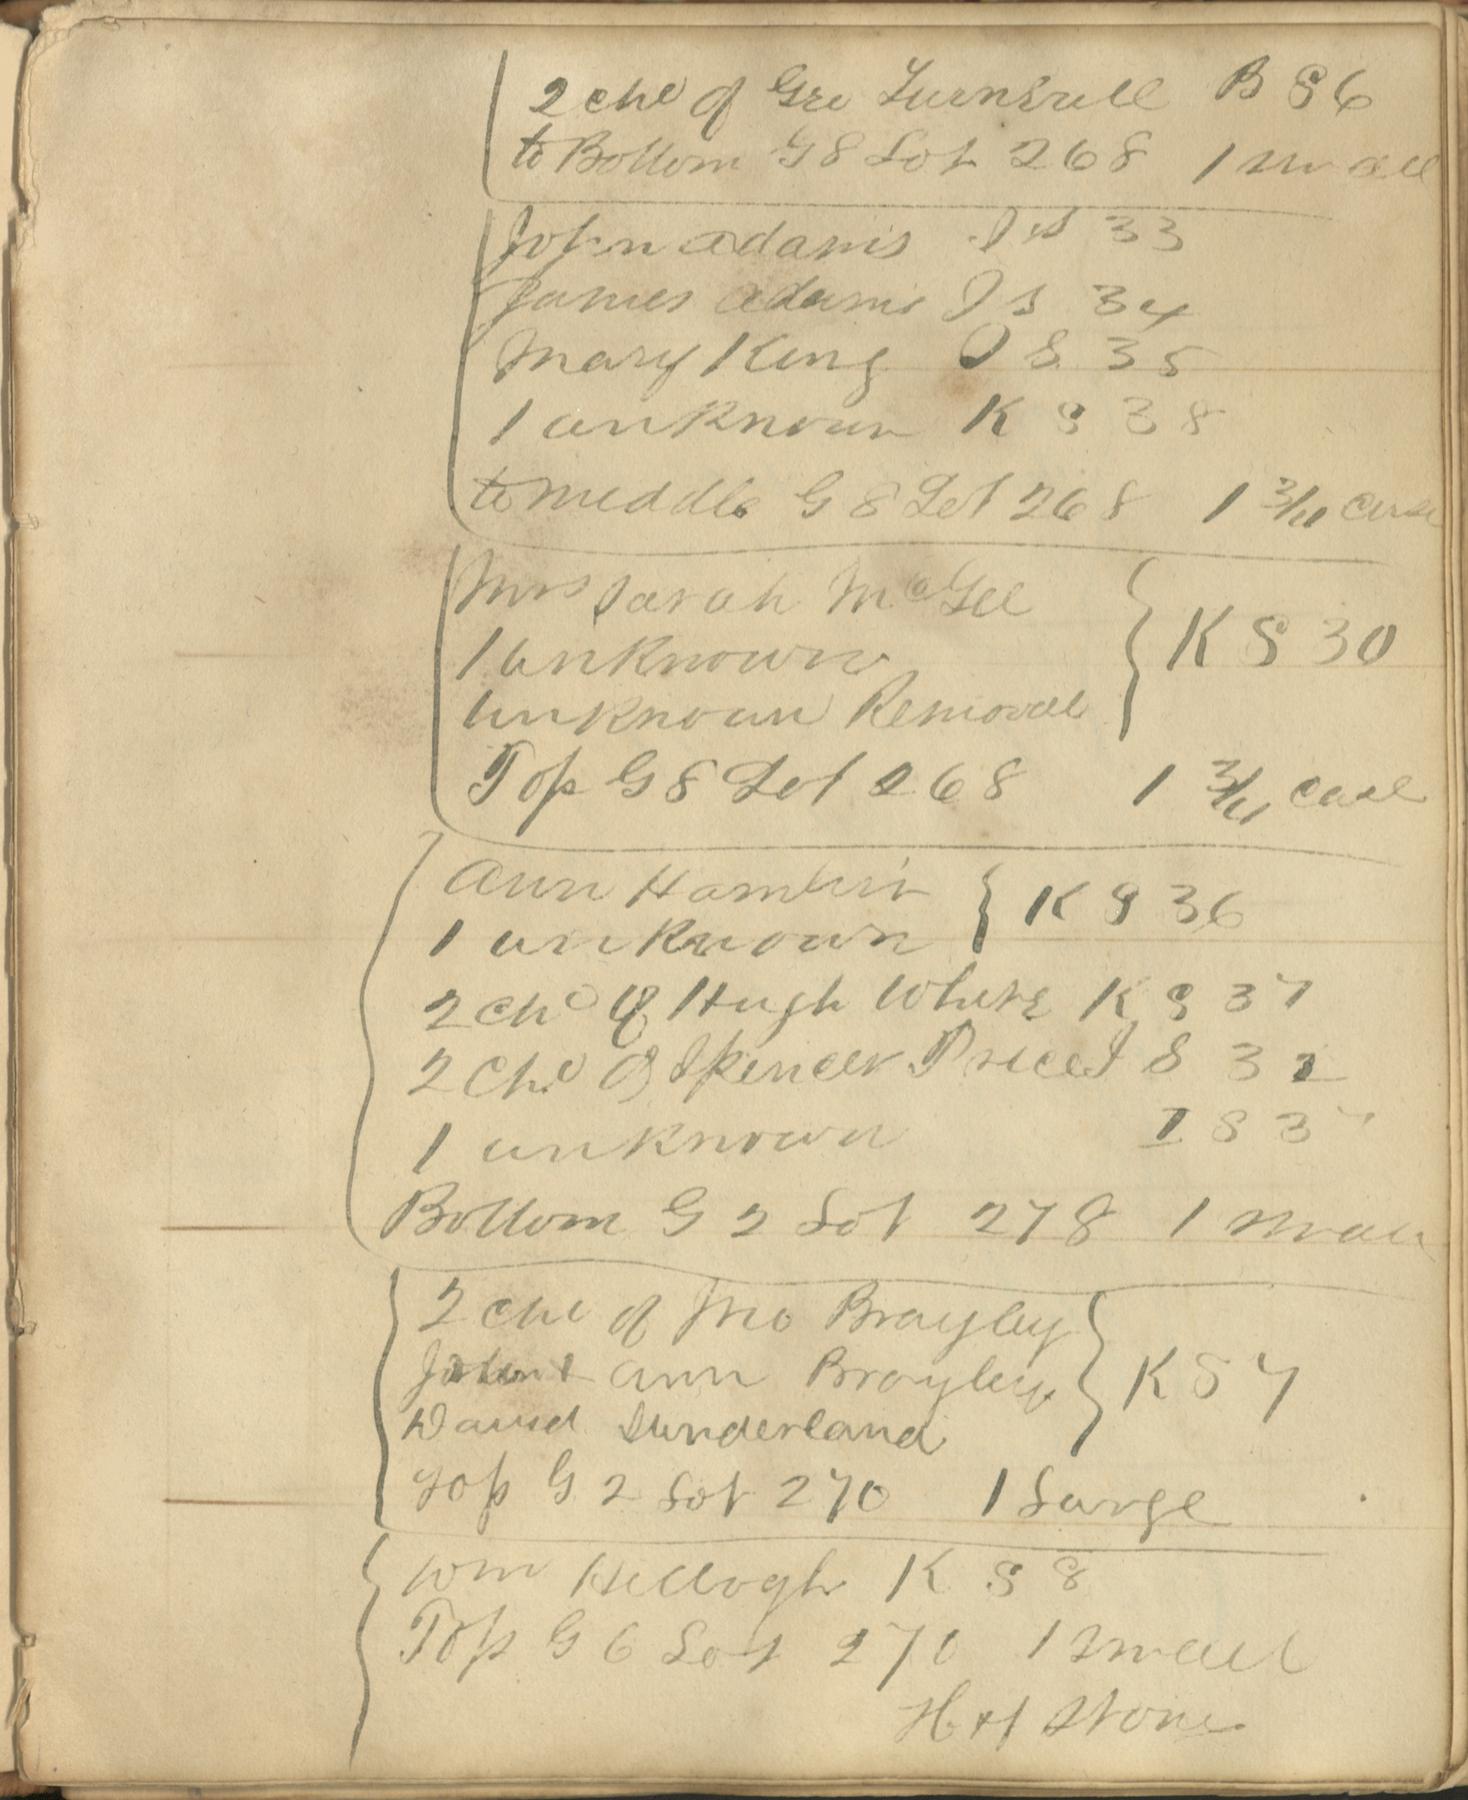 2 chd of Geo Turnbull B S 6
to Bottom G 8 Lot 268 1 small
John Adams I S 33
James Adams I S 34
Mary King I S 35
1 unknown K S 38
to middle G 8 Lot 268 1 3/11 case
Mrs Sarah McGee
1 unknown K S 30
unknown Removal
Top G 8 Lot 268 1 3/11 case
Ann Hamlin K S 36
1 unknown
2 chd of Hugh White K S 37
2 chd of Spencer Price I S 32
1 unknown I S 3
Bottom G 2 Lot 278 1 small
2 chd of Jno Brayley
John & Ann Brayley K S 7
David Sunderland
Top G 2 Lot 270 1 Large
Wm Kellogh K S 8
Top G 6 Lot 270 1 small
H Stone